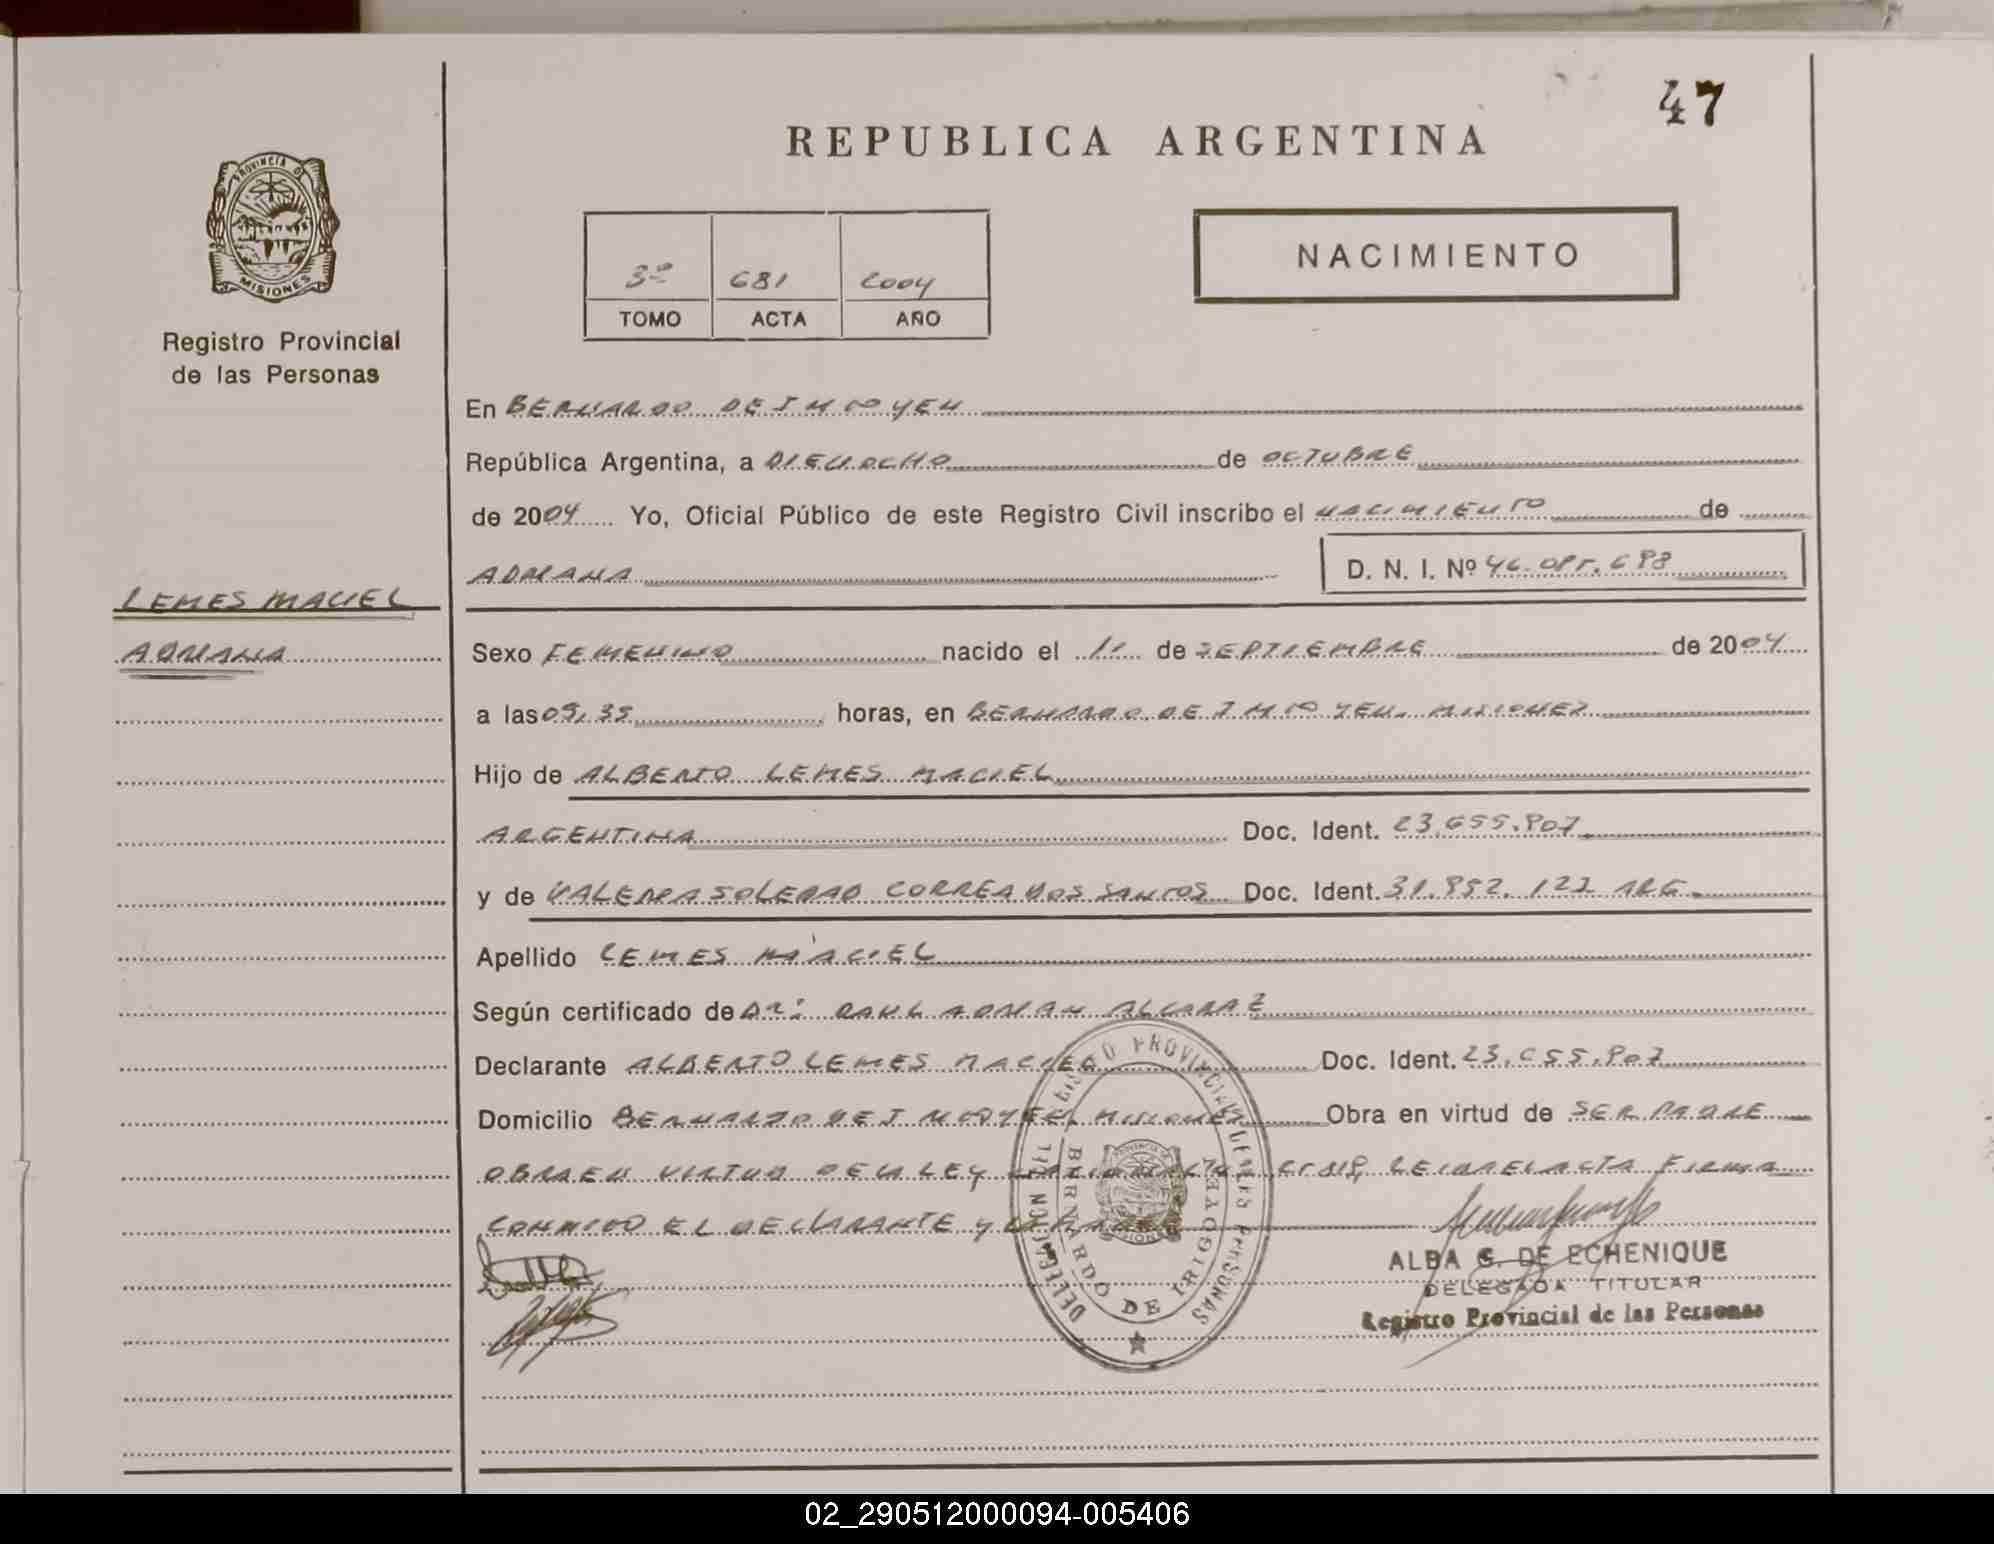 47
REPUBLICA ARGENTINA
PROVINCIA DE
MISIONES
Registro Provincial
de las Personas
NACIMIENTO
3º 681 2004
TOMO ACTA AÑO
En BERNARDO DE IRIGOYEN
República Argentina, a DIECIOCHO de OCTUBRE
de 2004 Yo, Oficial Público de este Registro Civil inscribo el NACIMIENTO de
ADRIANA D. N. I. Nº
LEMES MACIEL
ADRIANA
Sexo FEMENINO nacido el 11 de SEPTIEMBRE de 2004
a las horas, en BERNARDO DE IRIGOYEN. MISIONES
Hijo de ALBERTO LEMES MACIEL
ARGENTINA Doc. Ident. 23.655.907
y de VALERIA SOLEDAD CORREA DOS SANTOS Doc. Ident. ARG.
Apellido LEMES MACIEL
Según certificado de Dr: RAUL ADRIAN ALCARAZ
Declarante ALBERTO LEMES MACIEL Doc. Ident. 23.655.907
Domicilio BERNARDO DE IRIGOYEN, MISIONES Obra en virtud de SER PADRE
OBRA EN VIRTUD DE LA LEY LEIDA EL ACTA FIRMA
CONMIGO EL DECLARANTE Y
REGISTRO PROVINCIAL DE LAS PERSONAS
BERNARDO DE IRIGOYEN
ALBA G. DE ECHENIQUE
DELEGADA TITULAR
Registro Provincial de las Personas
02_290512000094-005406